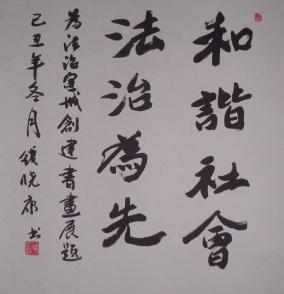 和諧社會
法治為先
為法治宣城創建書畫展題
己丑年冬月 晓康书